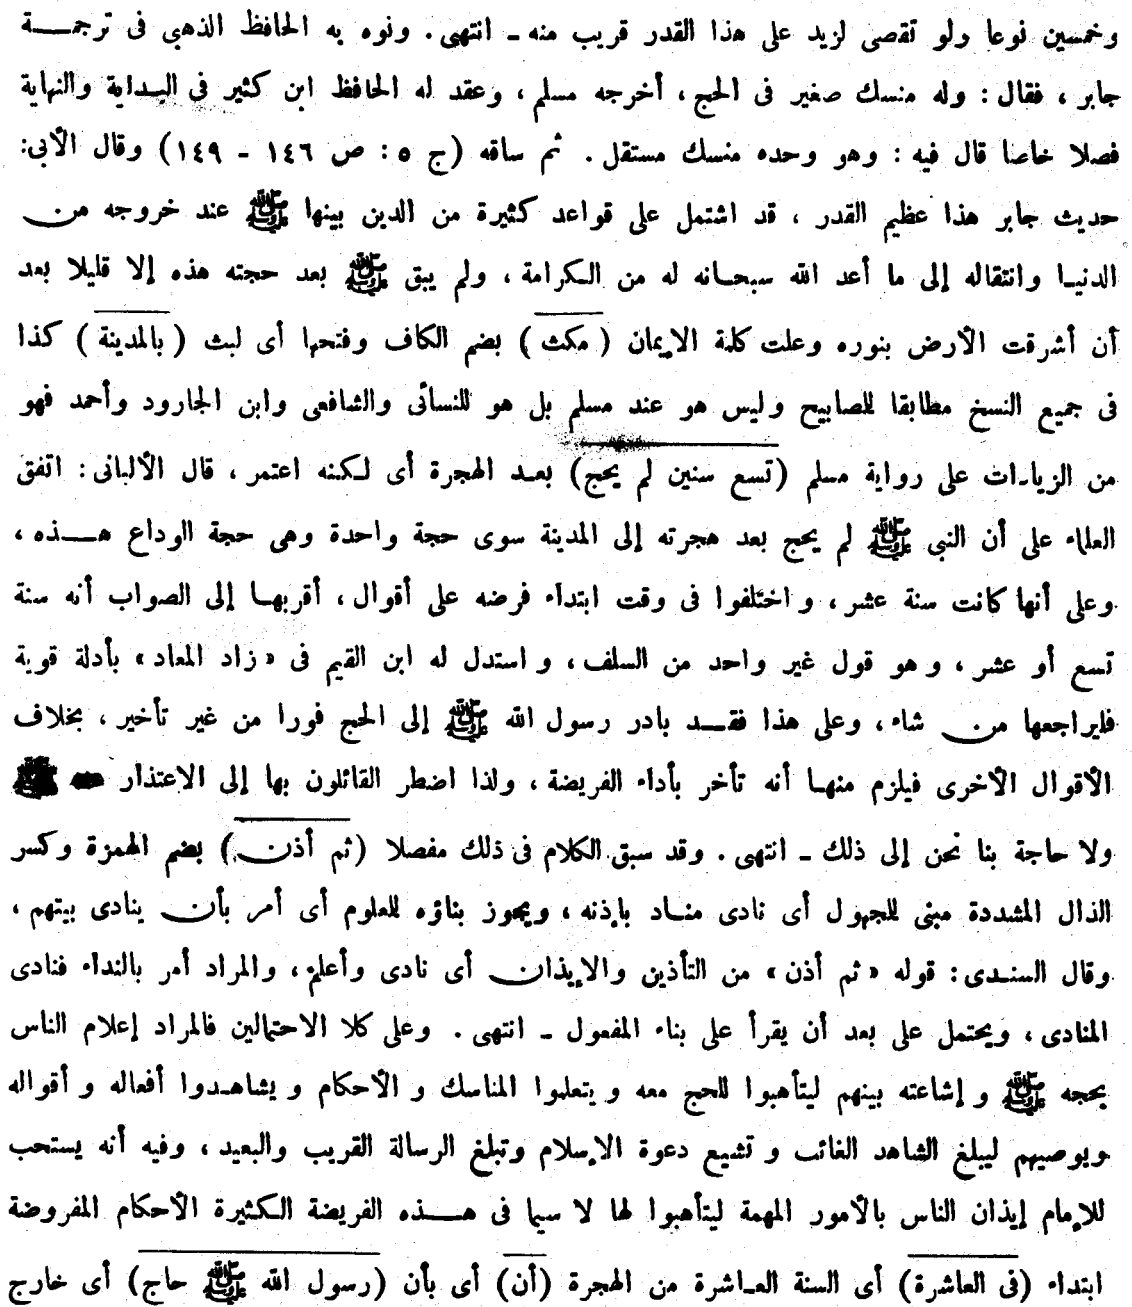 وخمسين نوعا ولو تقصى لزيد على هذا القدر قريب منه ـ انتهى . ونوه به الحافظ الذهبي فى ترجمــــة
جابر ، فقال : وله منسك صغير فى الحج ، أخرجه مسلم ، وعقد له الحافظ ابن كثير فى البـداية والنهاية
فصلا خاصا قال فيه : وهو وحده منسك مستقل . ثم ساقه (ج ٥ : ص ١٤٦ - ١٤٩) وقال الأبى:
حديث جابر هذا عظيم القدر ، قد اشتمل على قواعد كثيرة من الدين بينها ﷺ عند خروجه من
الدنيـا وانتقاله إلى ما أعد الله سبحـانه له من الكرامة ، ولم يبق ﷺ بعد حجته هذه إلا قليلا بعد
أن أشرقت الأرض بنوره وعلت كلمة الإيمان ( مكث ) بضم الكاف وفتحها أى لبث ( بالمدينة ) كذا
فى جميع النسخ مطابقا للمصابيح وليس هو عند مسلم بل هو للنسائى والشافعى وابن الجارود وأحمد فهو
من الزيادات على رواية مسلم (تسع سنين لم يحج) بعـد الهجرة أى لـكنه اعتمر ، قال الألبانى : اتفق
العلماء على أن النبى ﷺ لم يحج بعد هجرته إلى المدينة سوى حجة واحدة وهى حجة الوداع هـــذه ،
وعلى أنها كانت سنة عشر ، و اختلفوا فى وقت ابتداء فرضه على أقوال ، أقربهـا إلى الصواب أنه سنة
تسع أو عشر ، و هو قول غير واحد من السلف ، و استدل له ابن القيم فى « زاد المعاد » بأدلة قوية
فليراجعها من شاء ، وعلى هذا فقــد بادر رسول الله ﷺ إلى الحج فورا من غير تأخير ، بخلاف
الأقوال الأخرى فيلزم منهـا أنه تأخر بأداء الفريضة ، ولذا اضطر القائلون بها إلى الاعتذار ﷺ
ولا حاجة بنا نحن إلى ذلك ـ انتهى . وقد سبق الكلام فى ذلك مفصلا (ثم أذن) بضم الهمزة وكسر
الذال المشددة مبنى للمجهول أى نادى منـاد بإذنه ، ويجوز بناؤه للعلوم أى أمر بأن ينادى بيتهم ،
وقال السنـدى : قوله « ثم أذن » من التأذين والإيذان أى نادى وأعلم ، والمراد أمر بالنداء فنادى
المنادى ، ويحتمل على بعد أن يقرأ على بناء المفعول ـ انتهى . وعلى كلا الاحتمالين فالمراد إعلام الناس
بحجه ﷺ و إشاعته بينهم ليتأهبوا للحج معه و يتعلموا المناسك و الأحكام و يشاهـدوا أفعاله و أقواله
ويوصيهم ليبلغ الشاهد الغائب و تشيع دعوة الإسلام وتبلغ الرسالة القريب والبعيد ، وفيه أنه يستحب
للإمام إيذان الناس بالأمور المهمة ليتأهبوا لها لا سيما فى هـــذه الفريضة الـكثيرة الأحكام المفروضة
ابتداء (فى العاشرة) أى السنة العـاشرة من الهجرة (أن) أى بأن (رسول الله ﷺ حاج) أى خارج